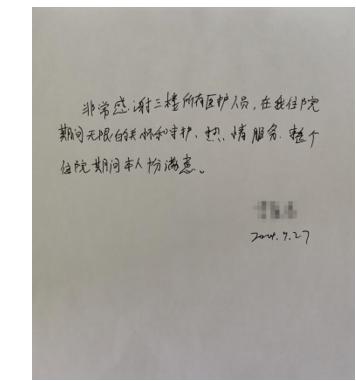 非常感谢三楼所有医护人员,在我住院
期间无限的关怀和守护、热情服务.整个
住院期间本人十分满意。
2024.9.27